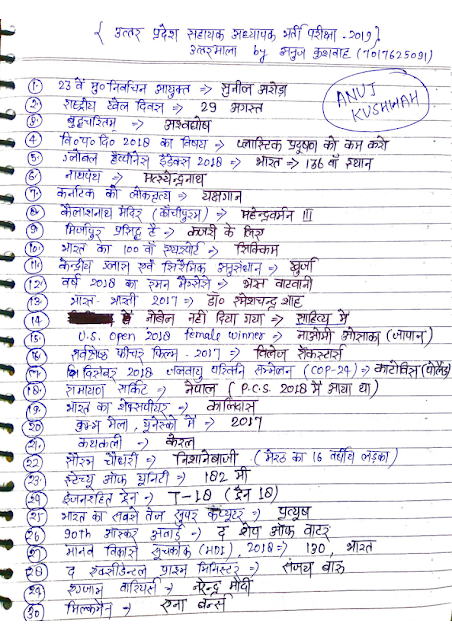 { उत्तर प्रदेश सहायक अध्यापक भर्ती परीक्षा -2019}
उत्तरमाला by अनुज कुशवाह (7017625091)
ANUJ
KUSHWAH
① 23 वें मु० निर्वाचन आयुक्त => सुनील अरोड़ा
② राष्ट्रीय खेल दिवस => 29 अगस्त
③ बुद्धचरितम् => अश्वघोष
④ वि०प०दि० 2018 का विषय => प्लास्टिक प्रदूषण को कम करो
⑤ ग्लोबल हैप्पीनेस इंडेक्स 2018 => भारत => 136 वाँ स्थान
⑥ नाथपंथ => मत्स्येन्द्रनाथ
7. कर्नाटक का लोकनृत्य => यक्षगान
⑧ कैलाशनाथ मंदिर (काँचीपुरम) => महेन्द्रवर्मन III
⑨ मिर्जापुर प्रसिद्ध है => कजरी के लिए
10. भारत का 100 वाँ एयरपोर्ट => सिक्किम
11. केन्द्रीय ग्लास एवं सिरेमिक अनुसंधान => खुर्जा
12. वर्ष 2018 का रमन मैग्सेसे => भरत वाटवानी
13 भारत-भारती 2017 => डॉ० रमेशचन्द्र शाह
14 नोबेल नहीं दिया गया => साहित्य में
15 U.S. open 2018 female winner => नाओमी ओसाका (जापान)
16 सर्वश्रेष्ठ फीचर फिल्म - 2017 => विलेज रॉकस्टार्स
17 दिसंबर 2018 जलवायु परिवर्तन सम्मेलन (COP-24) => काटोविस (पोलैंड)
18. रामायण सर्किट => नेपाल (P.C.S. 2018 में आया था)
19. भारत का शेक्सपीयर => कालिदास
20 कुम्भ मेला, यूनेस्को में => 2017
21. कथकली => केरल
22 सौरभ चौधरी => निशानेबाजी (मेरठ का 16 वर्षीय लड़का)
23. स्टेच्यू ऑफ यूनिटी => 182 मी
24 इंजनरहित ट्रेन => T-18 (ट्रेन 18)
25 भारत का सबसे तेज सुपर कंप्यूटर => प्रत्यूष
26 90th ऑस्कर अवार्ड => द शेप ऑफ वाटर
27 मानव विकास सूचकांक (HDI), 2018 => 130, भारत
28 द एक्सीडेन्टल प्राइम मिनिस्टर => संजय बारू
29 एग्जाम वारियर्स => नरेन्द्र मोदी
30 मिल्कमैन => एना बर्न्स